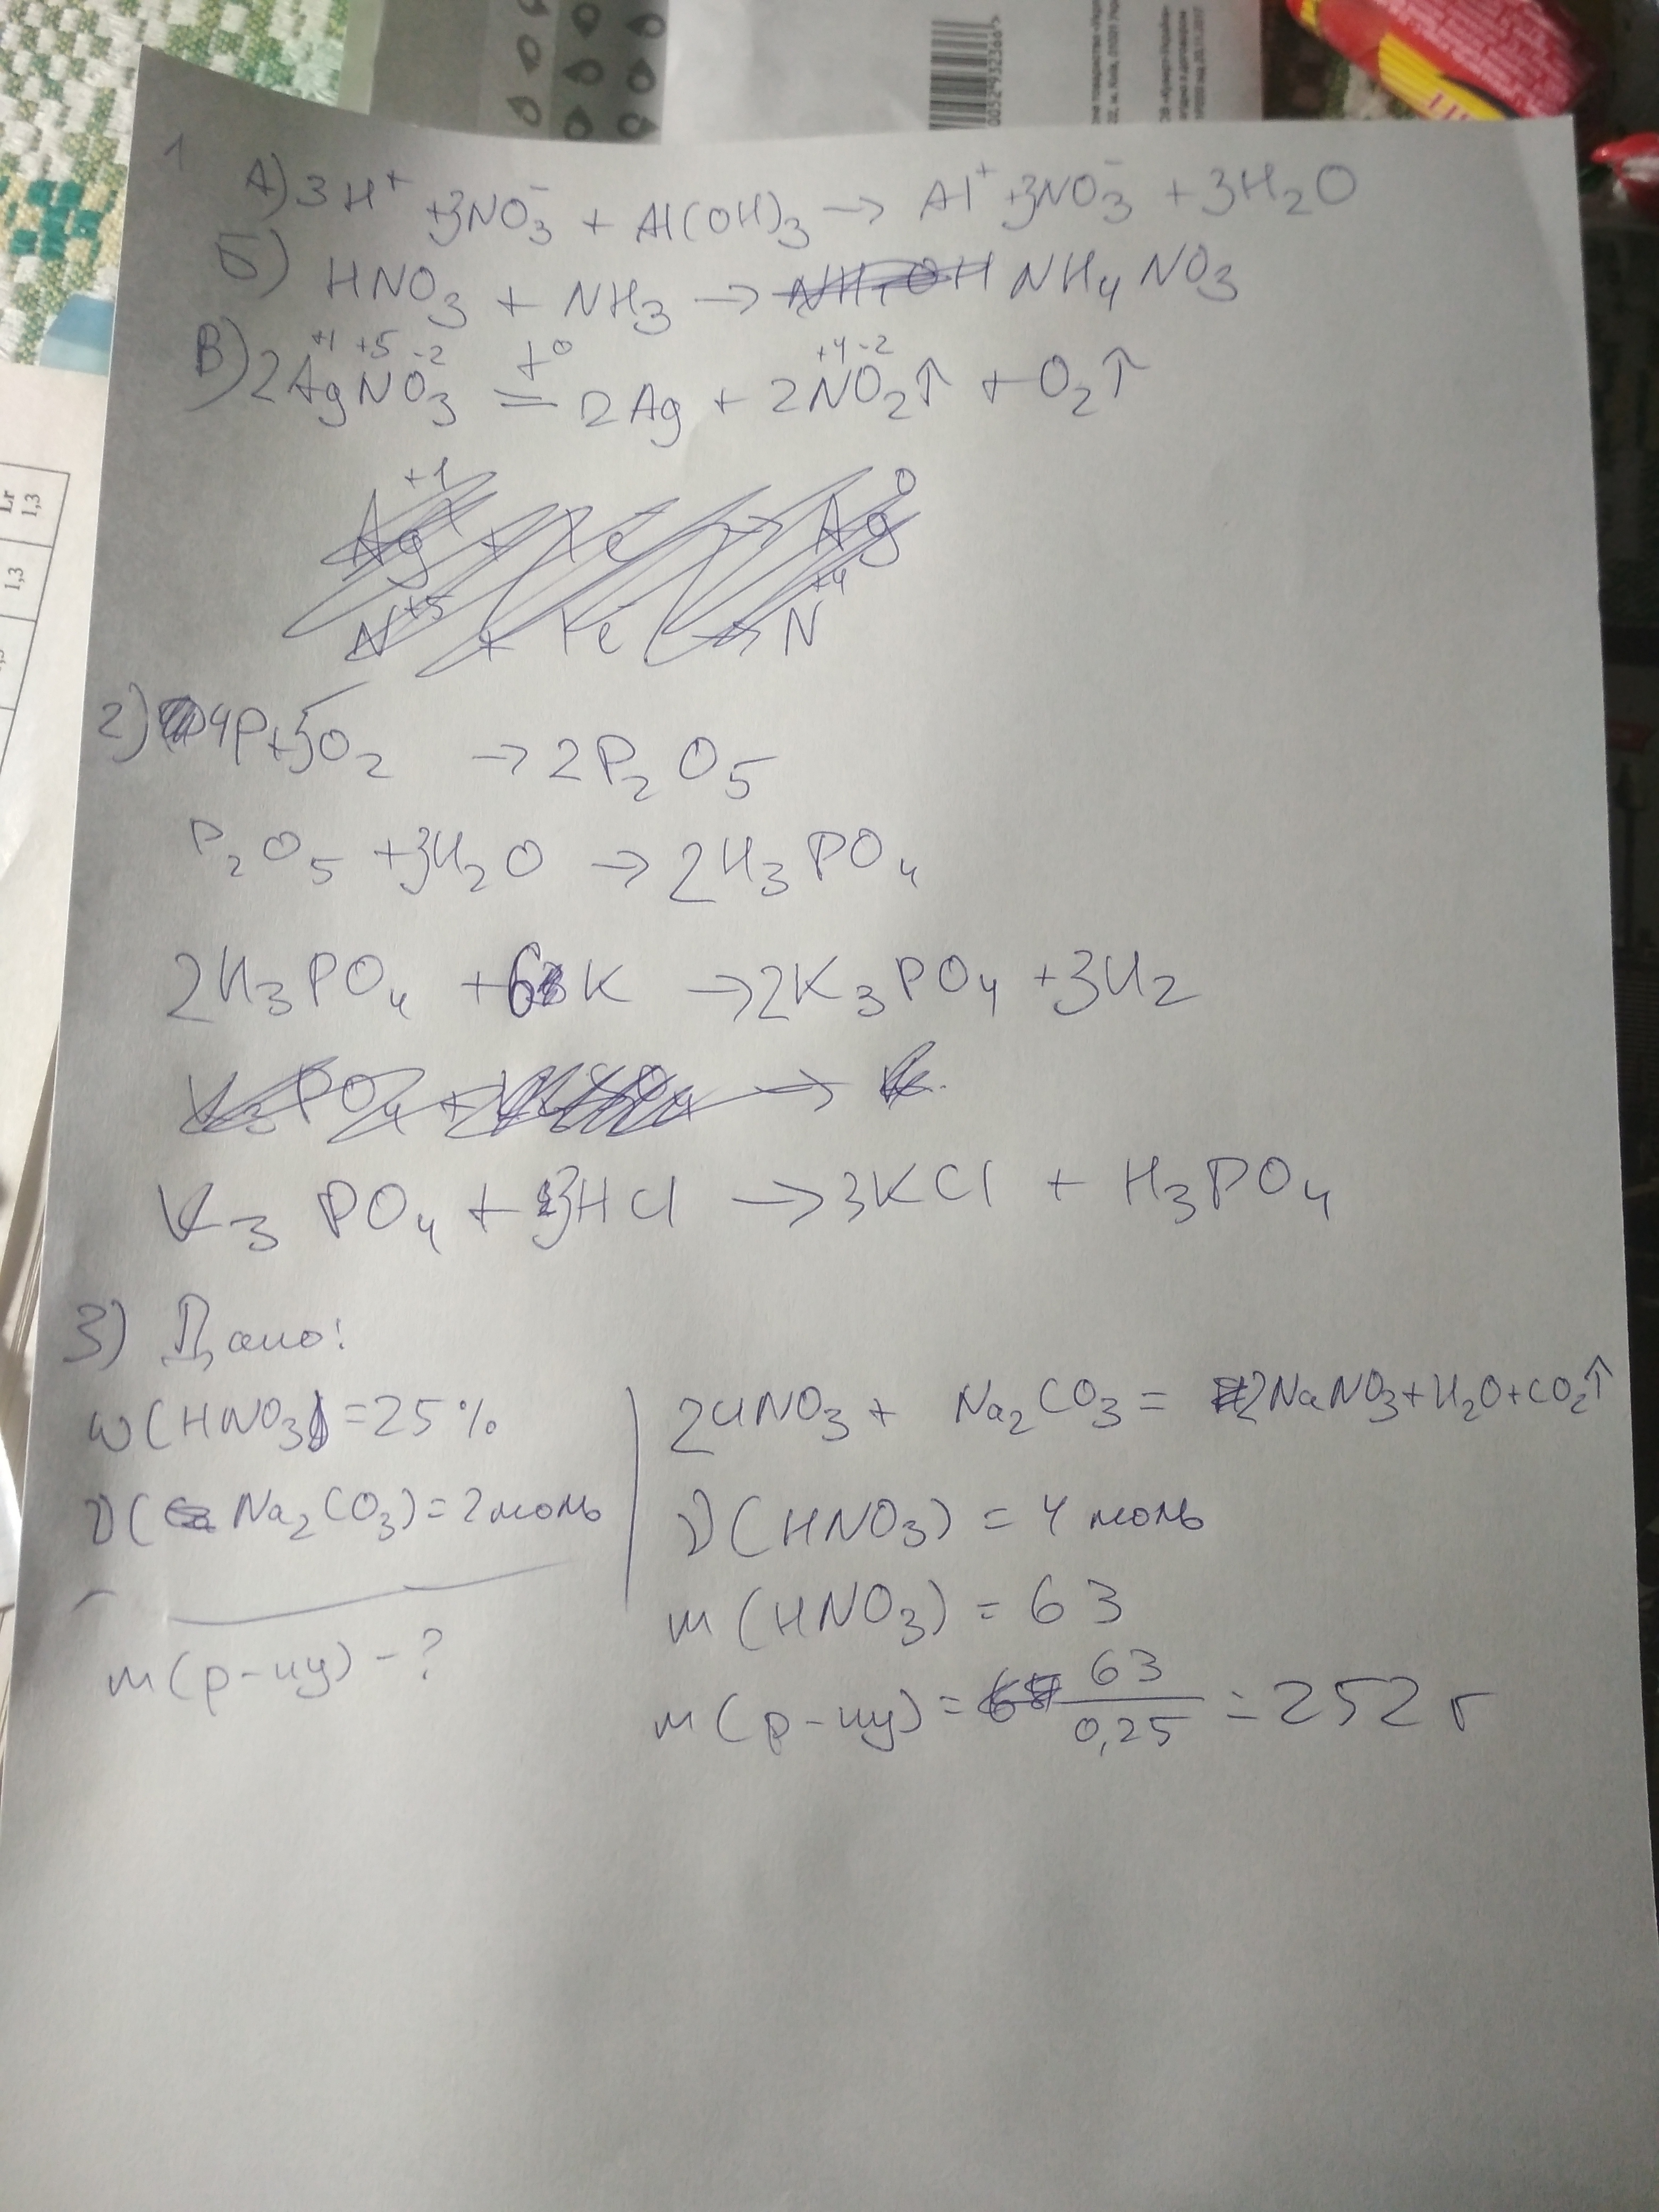 0052932366
Lr
1,3
1,3
1
А) 3H⁺ + 3NO₃⁻ + Al(OH)₃ → Al⁺ + 3NO₃⁻ + 3H₂O
Б) HNO₃ + NH₃ → NH₄NO₃
+1 +5 -2 +4 -2
В) 2AgNO₃ t°= 2Ag + 2NO₂↑ + O₂↑
Ag⁺¹ + e → Ag⁰
N⁺⁵ + 1e → N⁺⁴
2) 4P + 5O₂ → 2P₂O₅
P₂O₅ + 3H₂O → 2H₃PO₄
2H₃PO₄ + 6K → 2K₃PO₄ + 3H₂
K₃PO₄ + 3HCl → 3KCl + H₃PO₄
3) Дано:
ω(HNO₃) = 25%
ν(Na₂CO₃) = 2 моль
m(р-ну) - ?
2HNO₃ + Na₂CO₃ = 2NaNO₃ + H₂O + CO₂↑
ν(HNO₃) = 4 моль
m(HNO₃) = 63
m(р-ну) = 63/0,25 = 252 г